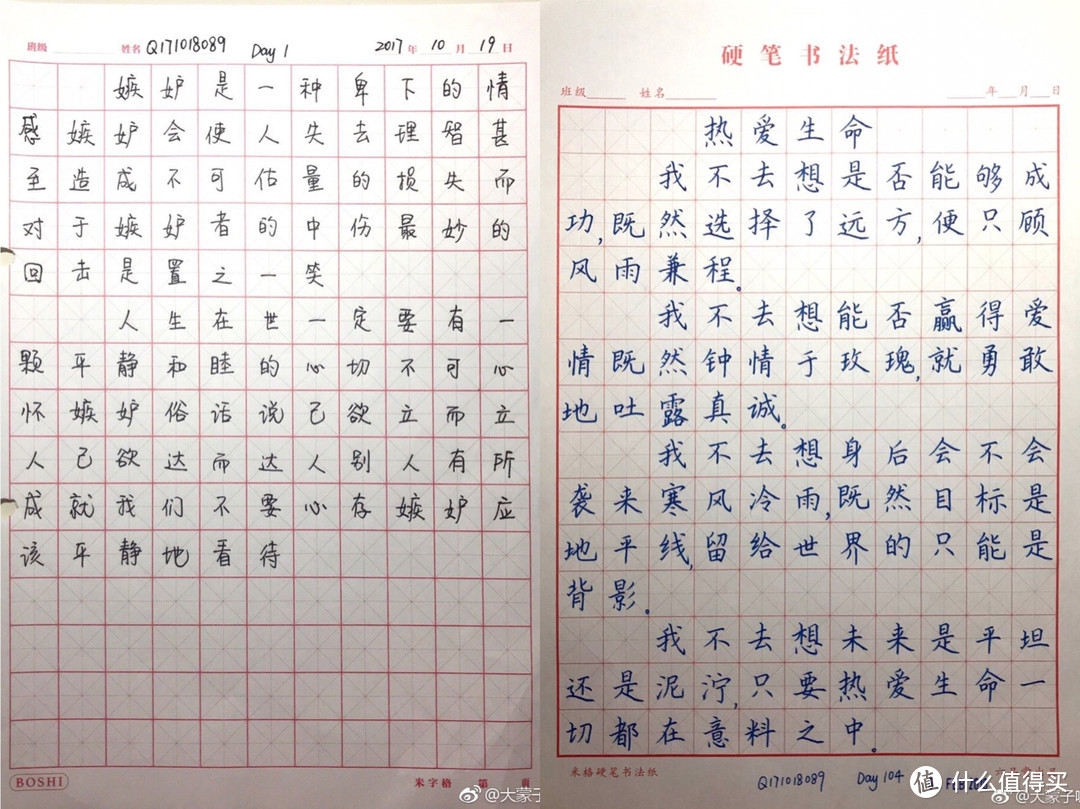 班级 姓名 Q171018089 Day 1 2017年10月19日
嫉妒是一种卑下的情
感嫉妒会使人失去理智甚
至造成不可估量的损失而
对于嫉妒者的中伤最妙的
回击是置之一笑
人生在世一定要有一
颗平静和睦的心切不可心
怀嫉妒俗话说己欲立而立
人己欲达而达人别人有所
成就我们不要心存嫉妒应
该平静地看待
BOSHI 米字格 第 页
@大蒙子
硬笔书法纸
班级 姓名 年 月 日
热爱生命
我不去想是否能够成
功,既然选择了远方,便只顾
风雨兼程。
我不去想能否赢得爱
情既然钟情于玫瑰,就勇敢
地吐露真诚。
我不去想身后会不会
袭来寒风冷雨,既然目标是
地平线,留给世界的只能是
背影。
我不去想未来是平坦
还是泥泞,只要热爱生命一
切都在意料之中。
米格硬笔书法纸
Q171018089 Day 104
值 什么值得买
@大蒙子